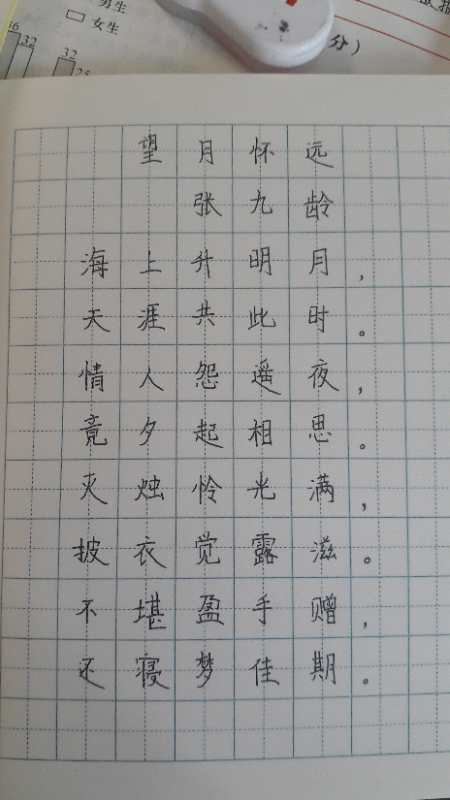 男生
36
32
女生
32
25
分）
望月怀远
张九龄
海上升明月，
天涯共此时。
情人怨遥夜，
竟夕起相思。
灭烛怜光满，
披衣觉露滋。
不堪盈手赠，
还寝梦佳期。